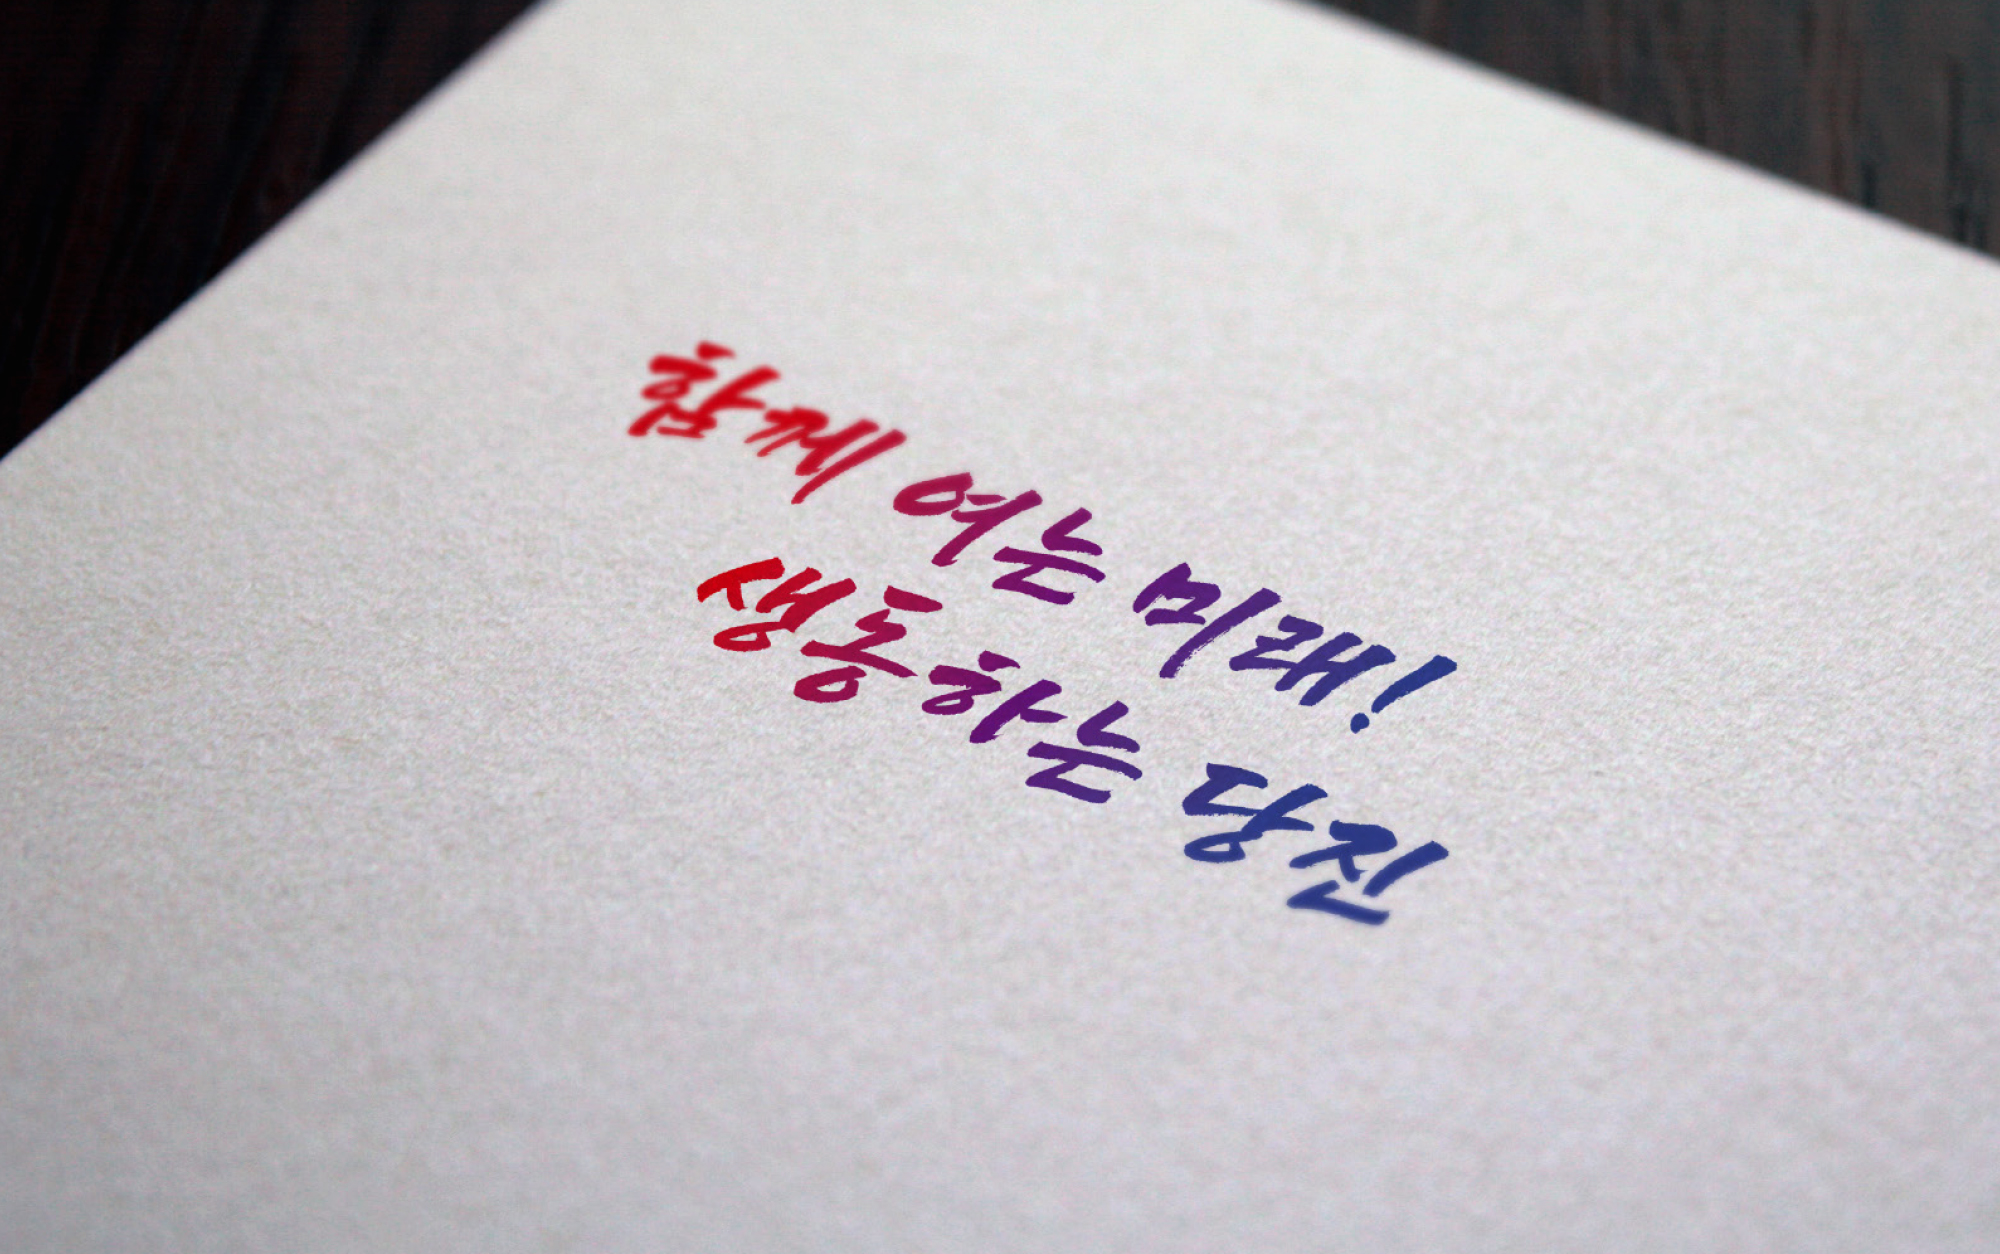 함께 여는 미래!
생동하는 당진